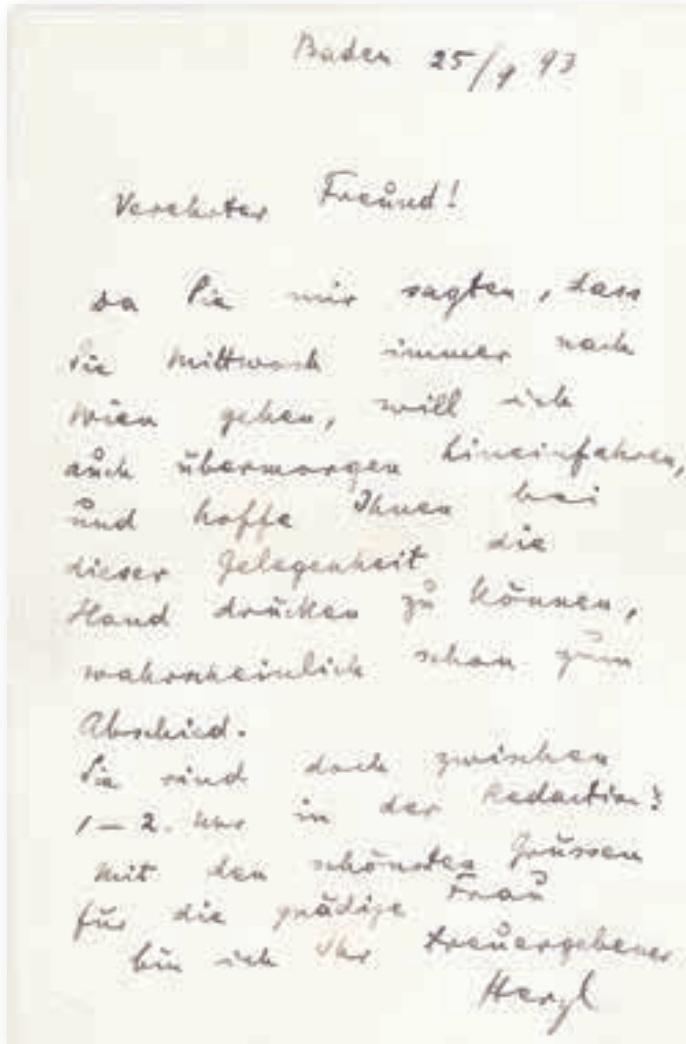 Baden 25/9 93
Verehrter Freund!
da Sie mir sagten, dass
Sie Mittwoch immer nach
Wien gehen, will ich
auch übermorgen hineinfahren,
und hoffe Ihnen bei
dieser Gelegenheit die
Hand drücken zu können,
wahrscheinlich schon zum
Abschied.
Sie sind doch zwischen
1–2. Uhr in der Redaction?
Mit den schönsten Grüssen
für die gnädige Frau
bin ich Ihr treuergebener
Herzl